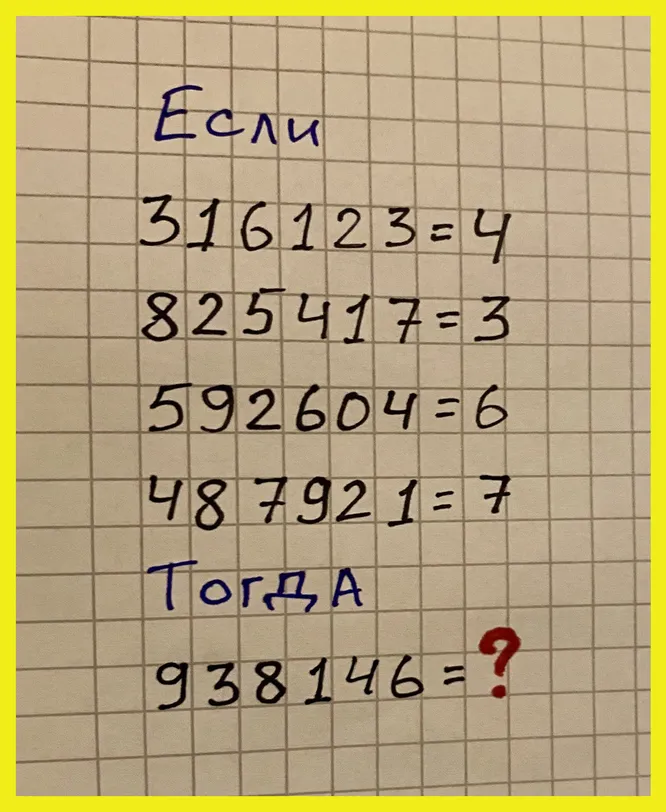 Если
316123=4
825417=3
592604=6
487921=7
Тогда
938146=?